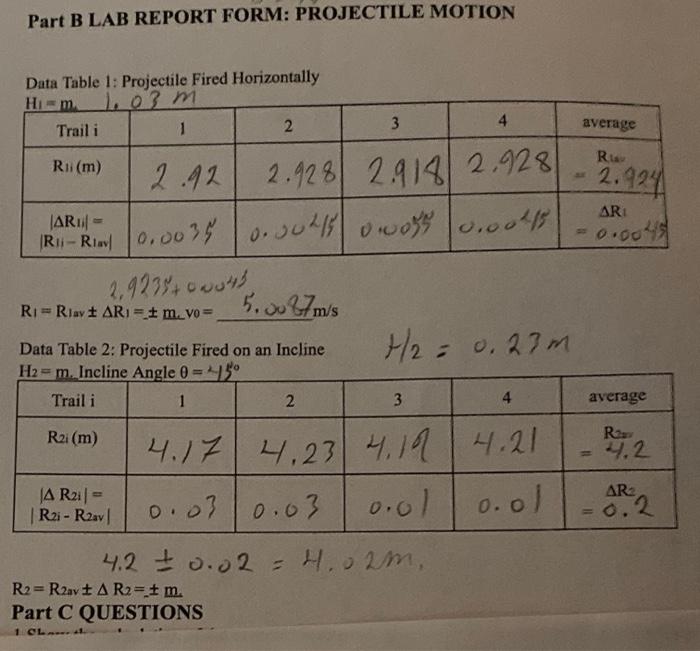 Part B LAB REPORT FORM: PROJECTILE MOTION
Data Table 1: Projectile Fired Horizontally
H1 = m. 1.03 m
Trail i 1 2 3 4 average
R1i (m) 2.92 2.928 2.918 2.928 R1av = 2.924
|ΔR1i| = |R1i – R1av| 0.0035 0.0045 0.0055 0.0045 ΔR1 = 0.0045
2.9235±0.0045
R1 = R1av ± ΔR1 = ± m. v0 = 5.0087 m/s
Data Table 2: Projectile Fired on an Incline H2 = 0.23m
H2 = m. Incline Angle θ = 45°
Trail i 1 2 3 4 average
R2i (m) 4.17 4.23 4.19 4.21 R2av = 4.2
|Δ R2i| = | R2i - R2av | 0.03 0.03 0.01 0.01 ΔR2 = 0.2
4.2 ± 0.02 = 4.02m.
R2 = R2av ± Δ R2 = ± m.
Part C QUESTIONS